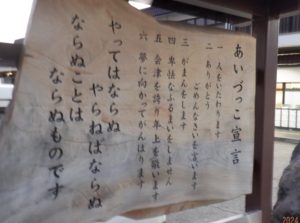 あいづっこ宣言
一 人をいたわります
二 ありがとう
ごめんなさいを言います
三 がまんをします
四 卑怯なふるまいをしません
五 会津を誇り年上を敬います
六 夢に向かってがんばります
やってはならぬ
やらねばならぬ
ならぬことは
ならぬものです
2024